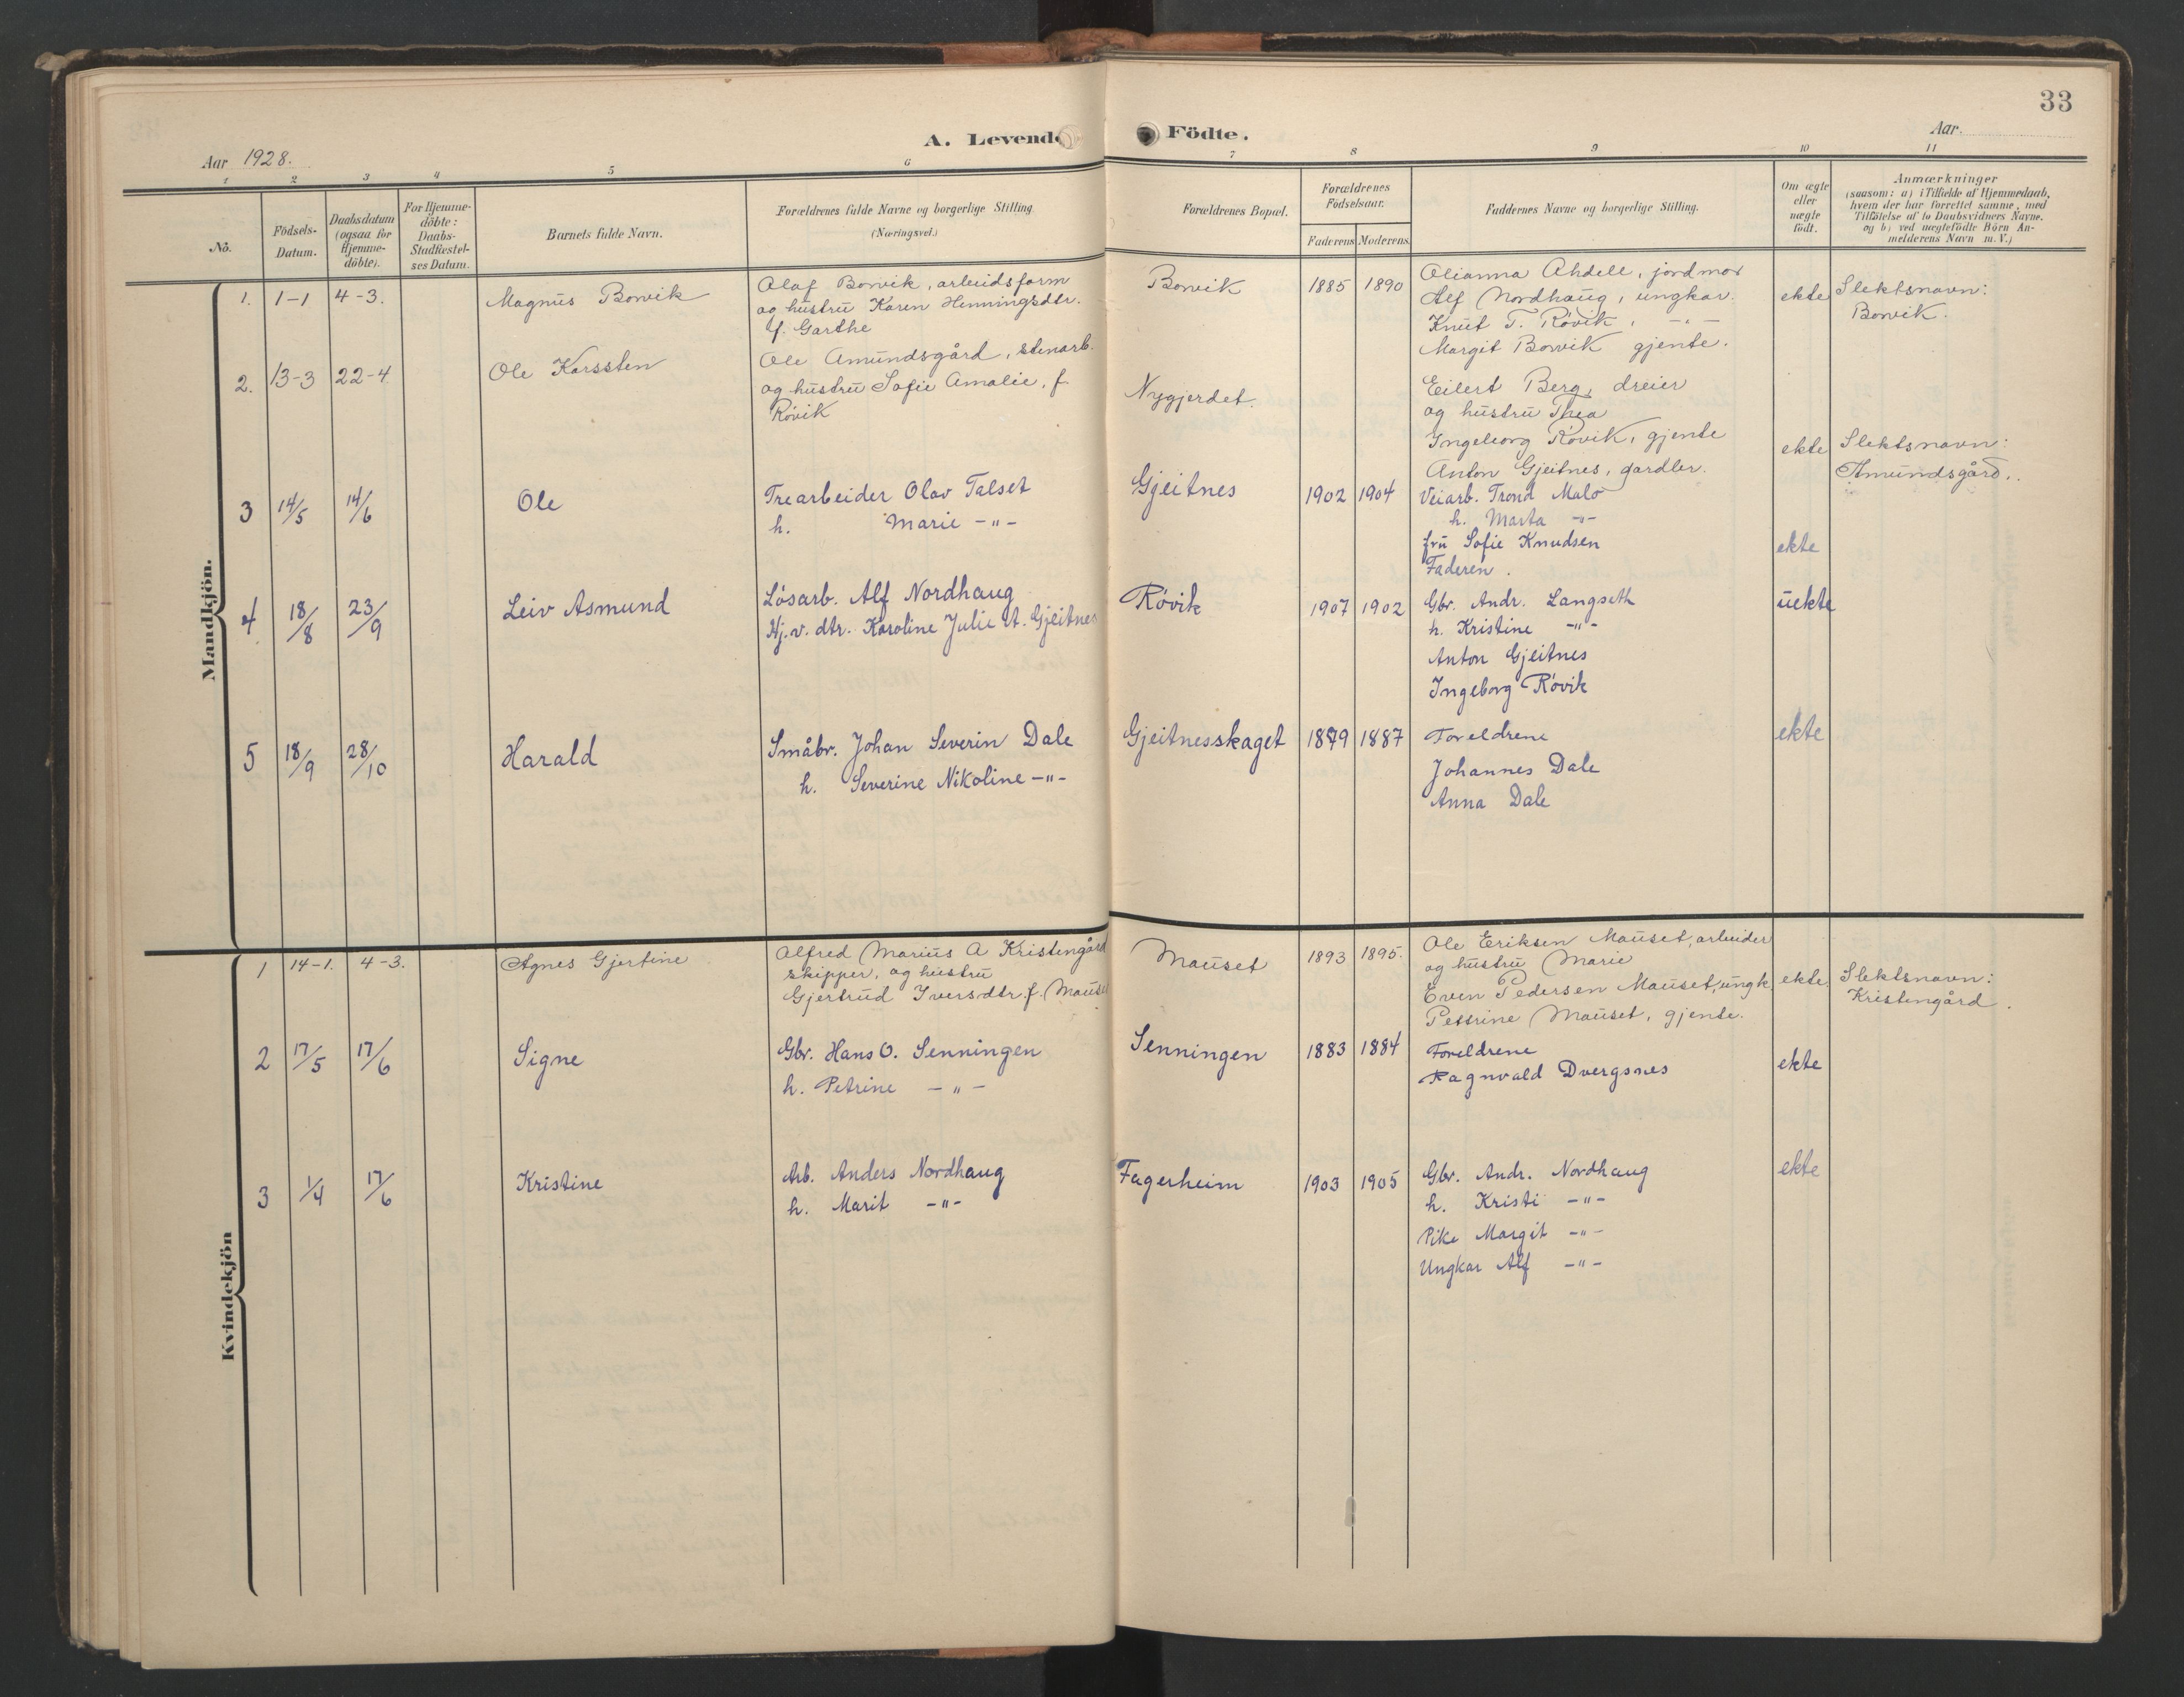 33
A. Levende Födte.
Aar 1928.
Aar.
1 2 3 4 5 6 7 8 9 10 11
No.
Födsels-
Datum.
Daabsdatum
(ogsaa for
Hjemme-
döbte).
For Hjemme-
döbte:
Daabs-
Stadfæstel-
ses Datum.
Barnets fulde Navn.
Forældrenes fulde Navne og borgerlige Stilling
(Næringsvei.)
Forældrenes Bopæl.
Forældrenes
Födselsaar.
Faderens Moderens
Faddernes Navne og borgerlige Stilling.
Om ægte
eller
uægte
födt.
Anmærkninger
(saasom: a) i Tilfælde af Hjemmedaab,
hvem der har forrettet samme, med
Tilföielse af to Daabsvidners Navne.
og b) ved uægtefödte Börn An-
melderens Navn m. V.)
Mandkjön.
1. 1-1 4-3.
Magnus Borvik
Olaf Borvik, arbeidsform
og hustru Karen Henningsdtr.
f. Garthe
Borvik
1885 1890
Olianna Ahdell, jordmor
Alf Nordhaug, ungkar.
Knut T. Røvik, -"-
Margit Borvik gjente.
ekte
Slektsnavn:
Borvik.
2. 13-3 22-4
Ole Karssten
Ole Amundsgård, stenarb.
og hustru Sofie Amalie, f.
Røvik
Nygjerdet.
Eilert Berg, dreier
og hustru Thea
Ingeborg Røvik, gjente
Anton Gjeitnes, gardbr.
ekte
Slektsnavn:
Amundsgård.
3 14/5 14/6
Ole
Trearbeider Olav Talset
h. Marie -"-
Gjeitnes
1902 1904
Veiarb. Trond Malo
h. Marta -"-
fru Sofie Knudsen
Faderen.
ekte
4 18/8 23/9
Leiv Asmund
Løsarb. Alf Nordhaug
Hj.v. dtr. Karoline Julie A. Gjeitnes
Røvik
1907 1902
Gbr. Andr. Langseth
h. Kristine -"-
Anton Gjeitnes
Ingeborg Røvik
uekte
5 18/9 28/10
Harald
Småbr. Johan Severin Dale
h. Severine Nikoline -"-
Gjeitnesskaget
1879 1887
Foreldrene
Johannes Dale
Anna Dale
ekte
Kvindekjön
1 14-1. 4-3.
Agnes Gjertine
Alfred Marius A Kristengård
skipper, og hustru
Gjertrud Iversdtr. f. Mauset
Mauset
1893 1895.
Ole Eriksen Mauset, arbeider
og hustru Marie
Even Pedersen Mauset, ungk.
Petrine Mauset, gjente.
ekte.
Slektsnavn:
Kristengård.
2 17/5 17/6
Signe
Gbr. Hans O. Senningen
h. Petrine -"-
Senningen
1883 1884
Foreldrene
Ragnvald Dvergsnes
ekte
3 1/4 17/6
Kristine
Arb. Anders Nordhaug
h. Marit -"-
Fagerheim
1903 1905
Gbr. Andr. Nordhaug
h. Kristi -"-
Pike Margit -"-
Ungkar Alf -"-
ekte